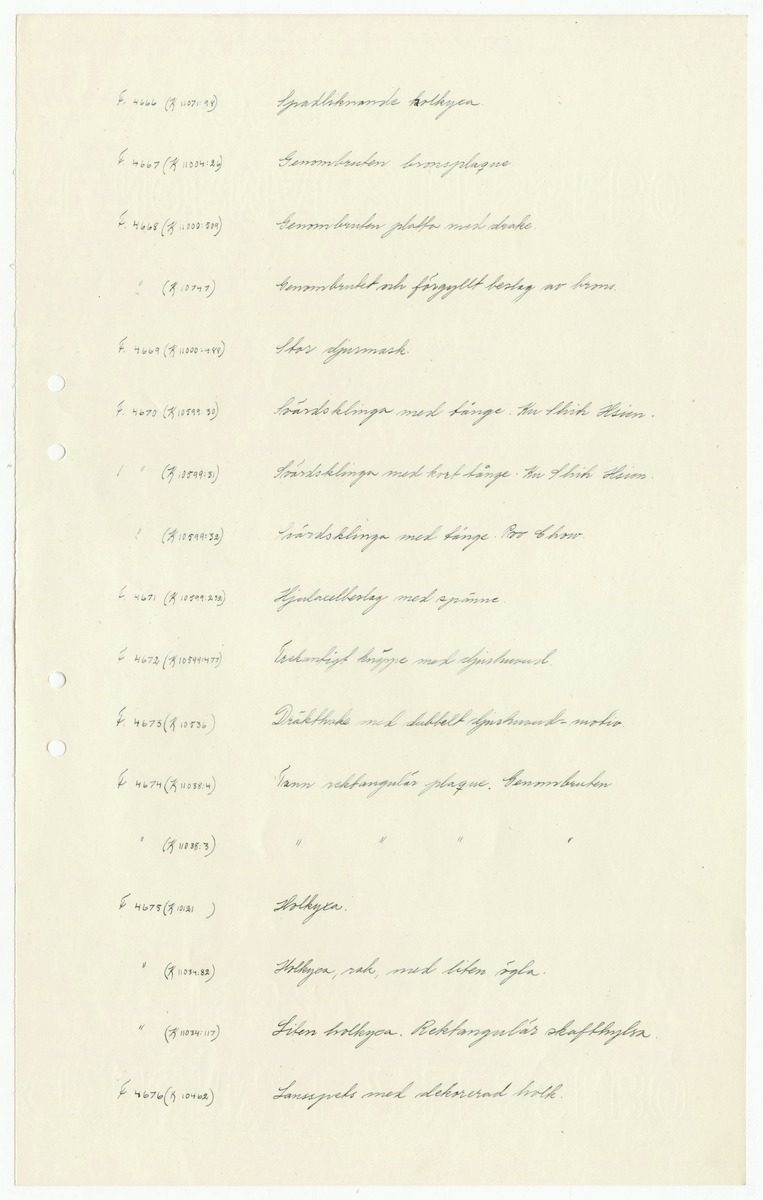 F. 4666 (K 11071:98) Spadliknande holkyxa.
F 4667 (K 11004:26) Genombruten bronsplaque
F. 4668 (K 11000:509) Genombruten platta med drake.
" (K 10747) Genombrutet och förgyllt beslag av brons.
F. 4669 (K 11000:488) Stor djurmask.
F. 4670 (K 10599:30) Svärdsklinga med tånge. Hu Shih Hsien.
" (K 10599:31) Svärdsklinga med kort tånge. Hu Shih Hsien.
" (K 10599:32) Svärdsklinga med tånge. Chow.
F 4671 (K 10599:232) Hjulaxelbeslag med spänne.
F 4672 (K 10599:477) Trekantigt knäppe med djurhuvud.
F. 4673 (K 10536) Dräkthake med dubbelt djurhuvud-motiv.
F 4674 (K 11038:4) Tunn rektangulär plaque. Genombruten
" (K 11038:3) " " " "
F 4675 (K 10121 ) Holkyxa.
" (K 11034:82) Holkyxa, rak, med liten ögla.
" (K 11034:117) Liten holkyxa. Rektangulär skafthylsa.
F 4676 (K 10462) Lansspets med dekorerad holk.